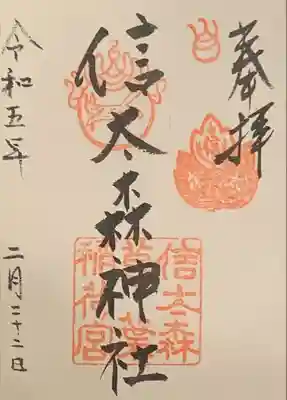 奉拝
信太森神社
令和五年 二月二十二日
信太森
稲荷宮